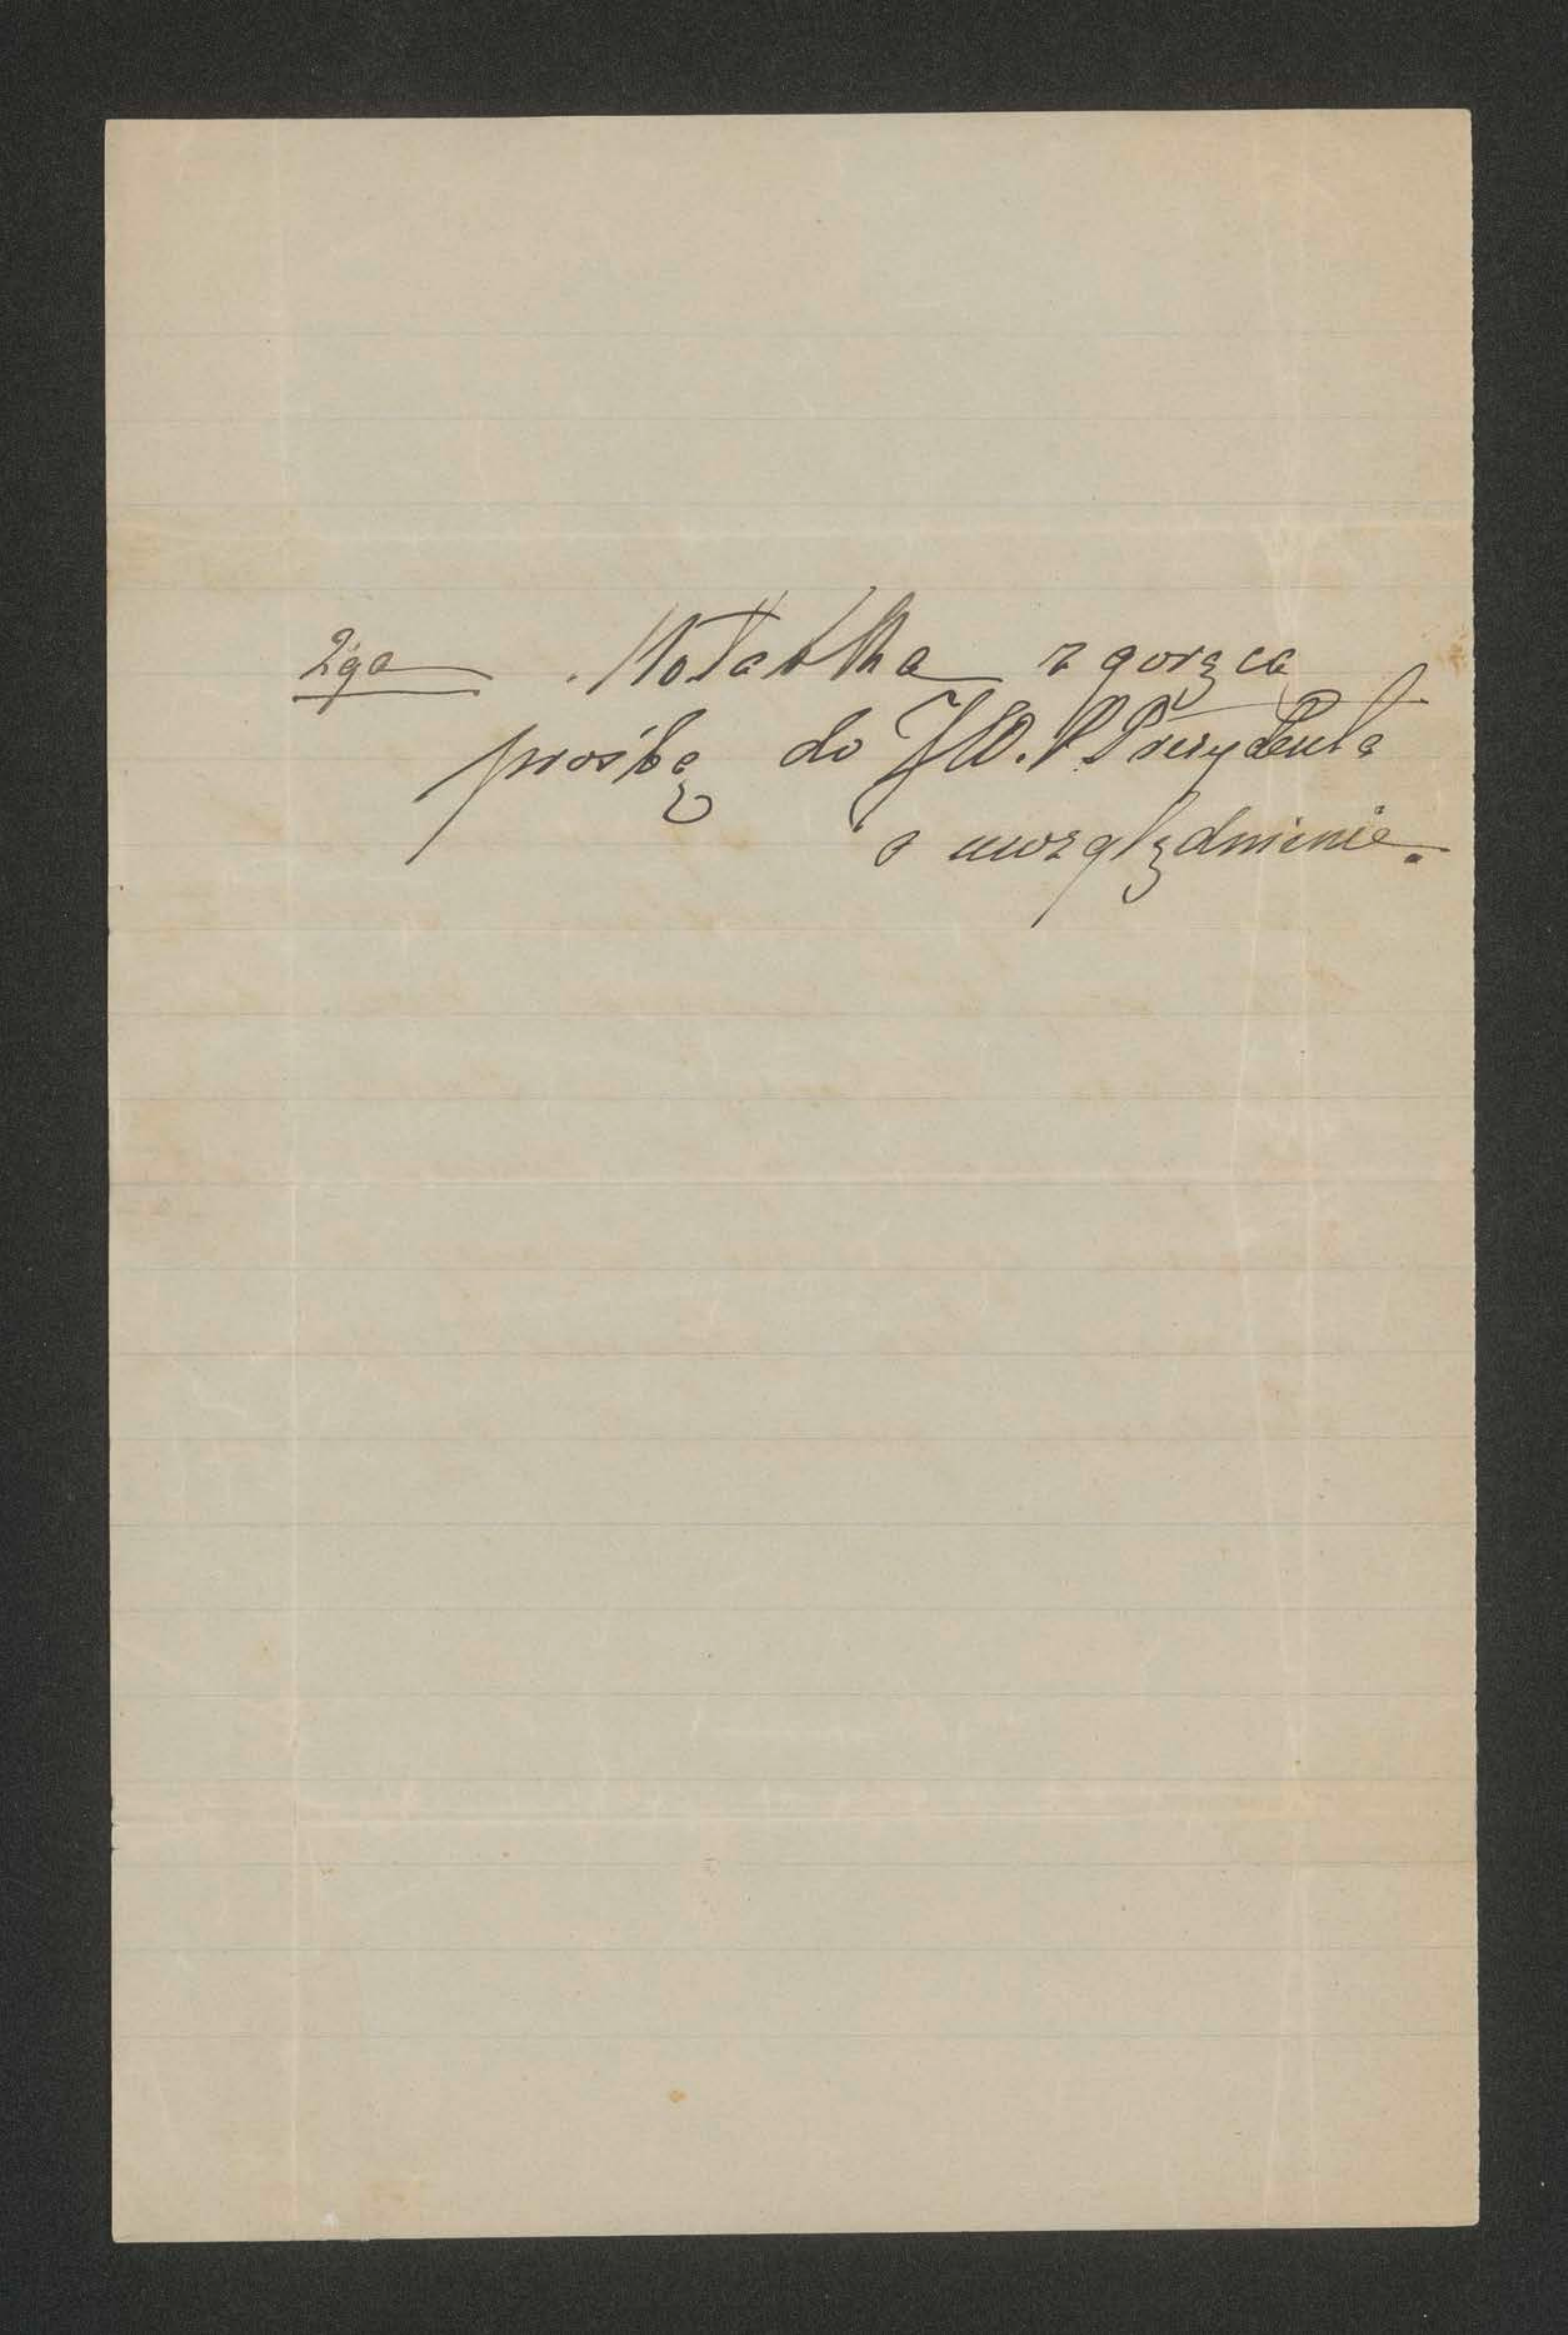 2ga Notatka z gorącą
prośbą do JW. P. Prezydenta
o uwzględnienie.